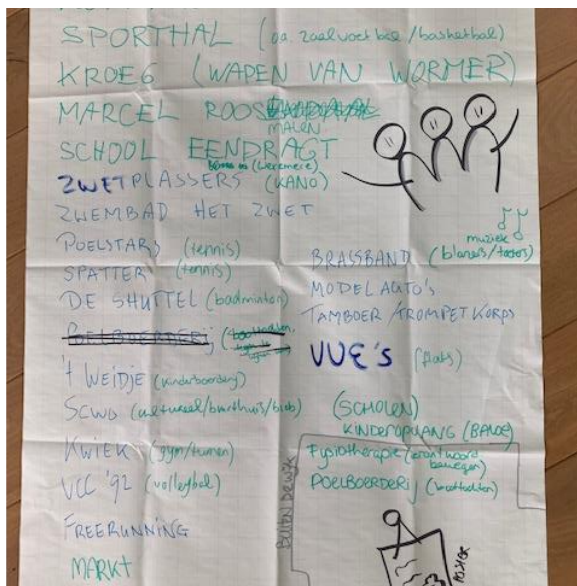 SPORTHAL (o.a. zaalvoetbal/basketbal)
KROEG (WAPEN VAN WORMER)
MARCEL ROOS
MALEN
SCHOOL EENDRAGT
(Weremere)
ZWETPLASSERS (KANO)
ZWEMBAD HET ZWET
POELSTARS (tennis)
SPATTER (tennis)
DE SHUTTEL (badminton)
't WEIDJE (kinderboerderij)
SCWO (cultureel/buurthuis/bieb)
KWIEK (gym/turnen)
VCC '92 (volleybal)
FREERUNNING
MARKT
muziek
BRASSBAND (blazers/toeters)
MODELAUTO'S
TAMBOER/TROMPETKORPS
VVE's (flats)
(SCHOLEN)
KINDEROPVANG (BALOE)
BUITEN DE WIJK
Fysiotherapie (verantwoord bewegen)
POELBOERDERIJ (boottochten)